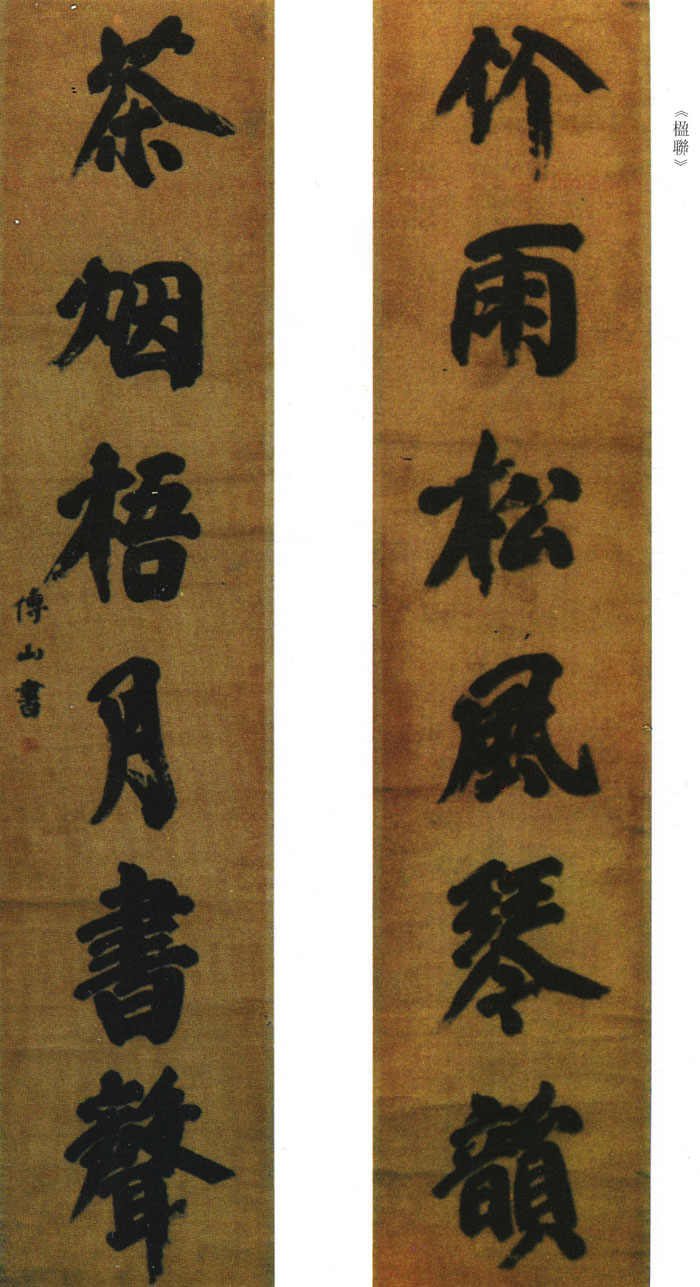 《楹聯》
竹雨松風琴韻
茶烟梧月書聲
傅山書